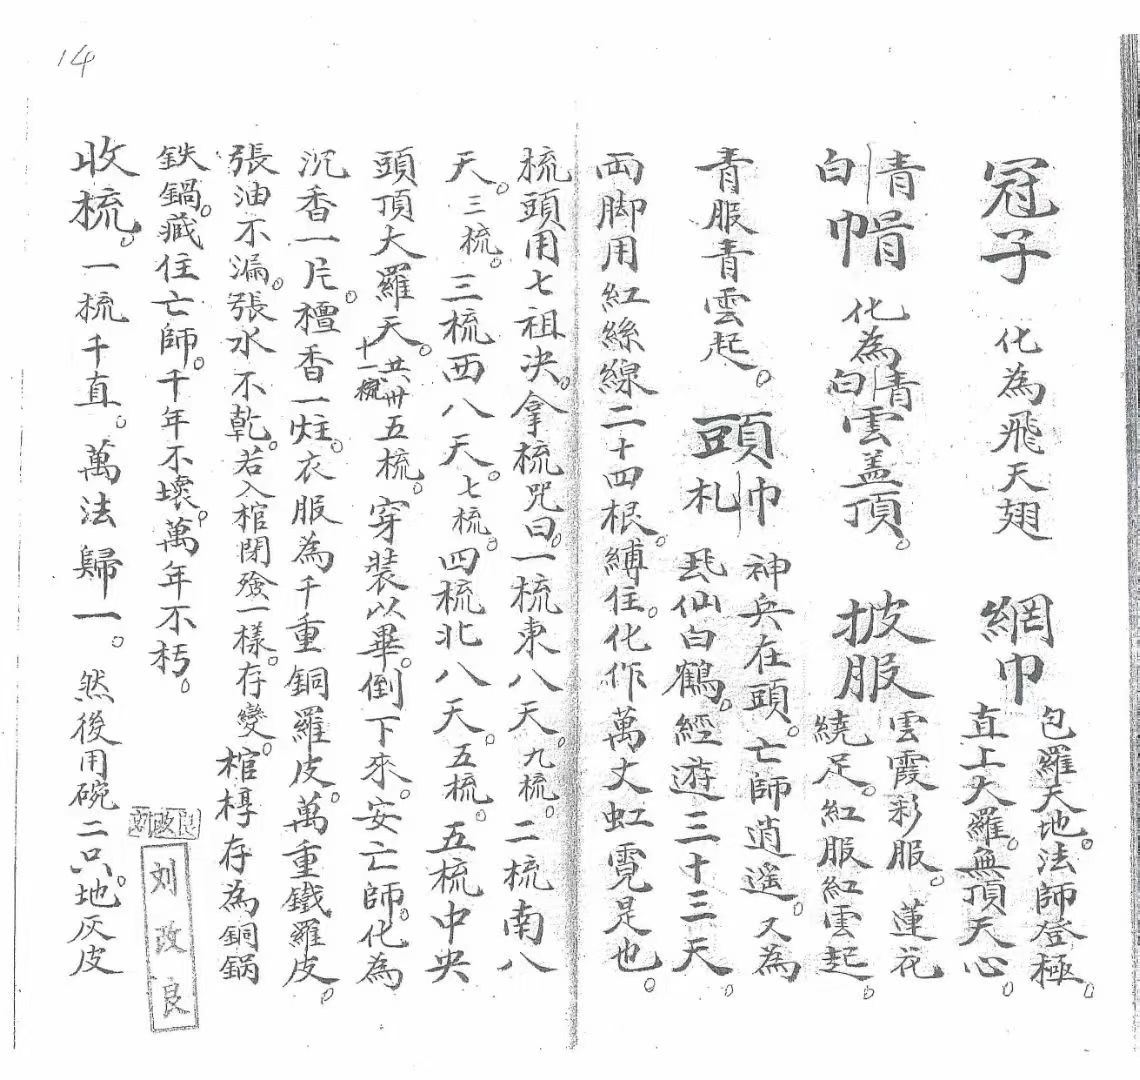 14
冠子 化為飛天翅 網巾 包羅天地。法師登極。
直上大羅。無頂天心。
青帽
白巾 化為青白雲盖頂。 披服 雲霞彩服。蓮花
繞足。紅服紅雲起。
青服青雲起。 頭巾 神兵在頭。亡師逍遥。又為
頭札 仙白鶴。經遊三十三天。
両脚用紅絲線二十四根。縛住。化作萬丈虹霓是也。
梳頭用七祖决。拿梳咒曰。一梳東八天。九梳。二梳南八
天。三梳。三梳西八天。七梳。四梳北八天。五梳。五梳中央
頭頂大羅天。十一梳共卅五梳。穿裝以畢。倒下來。安亡師。化為
沉香一片。檀香一炷。衣服為千重銅羅皮。萬重鐵羅皮。
張油不漏。張水不乾。若入棺閉殮一樣。存變。棺椁存為銅鍋
鉄鍋。藏住亡師。千年不壞。萬年不朽。
收梳。一梳千直。萬法歸一。然後用碗二只。地灰皮
刘改良
刘改良